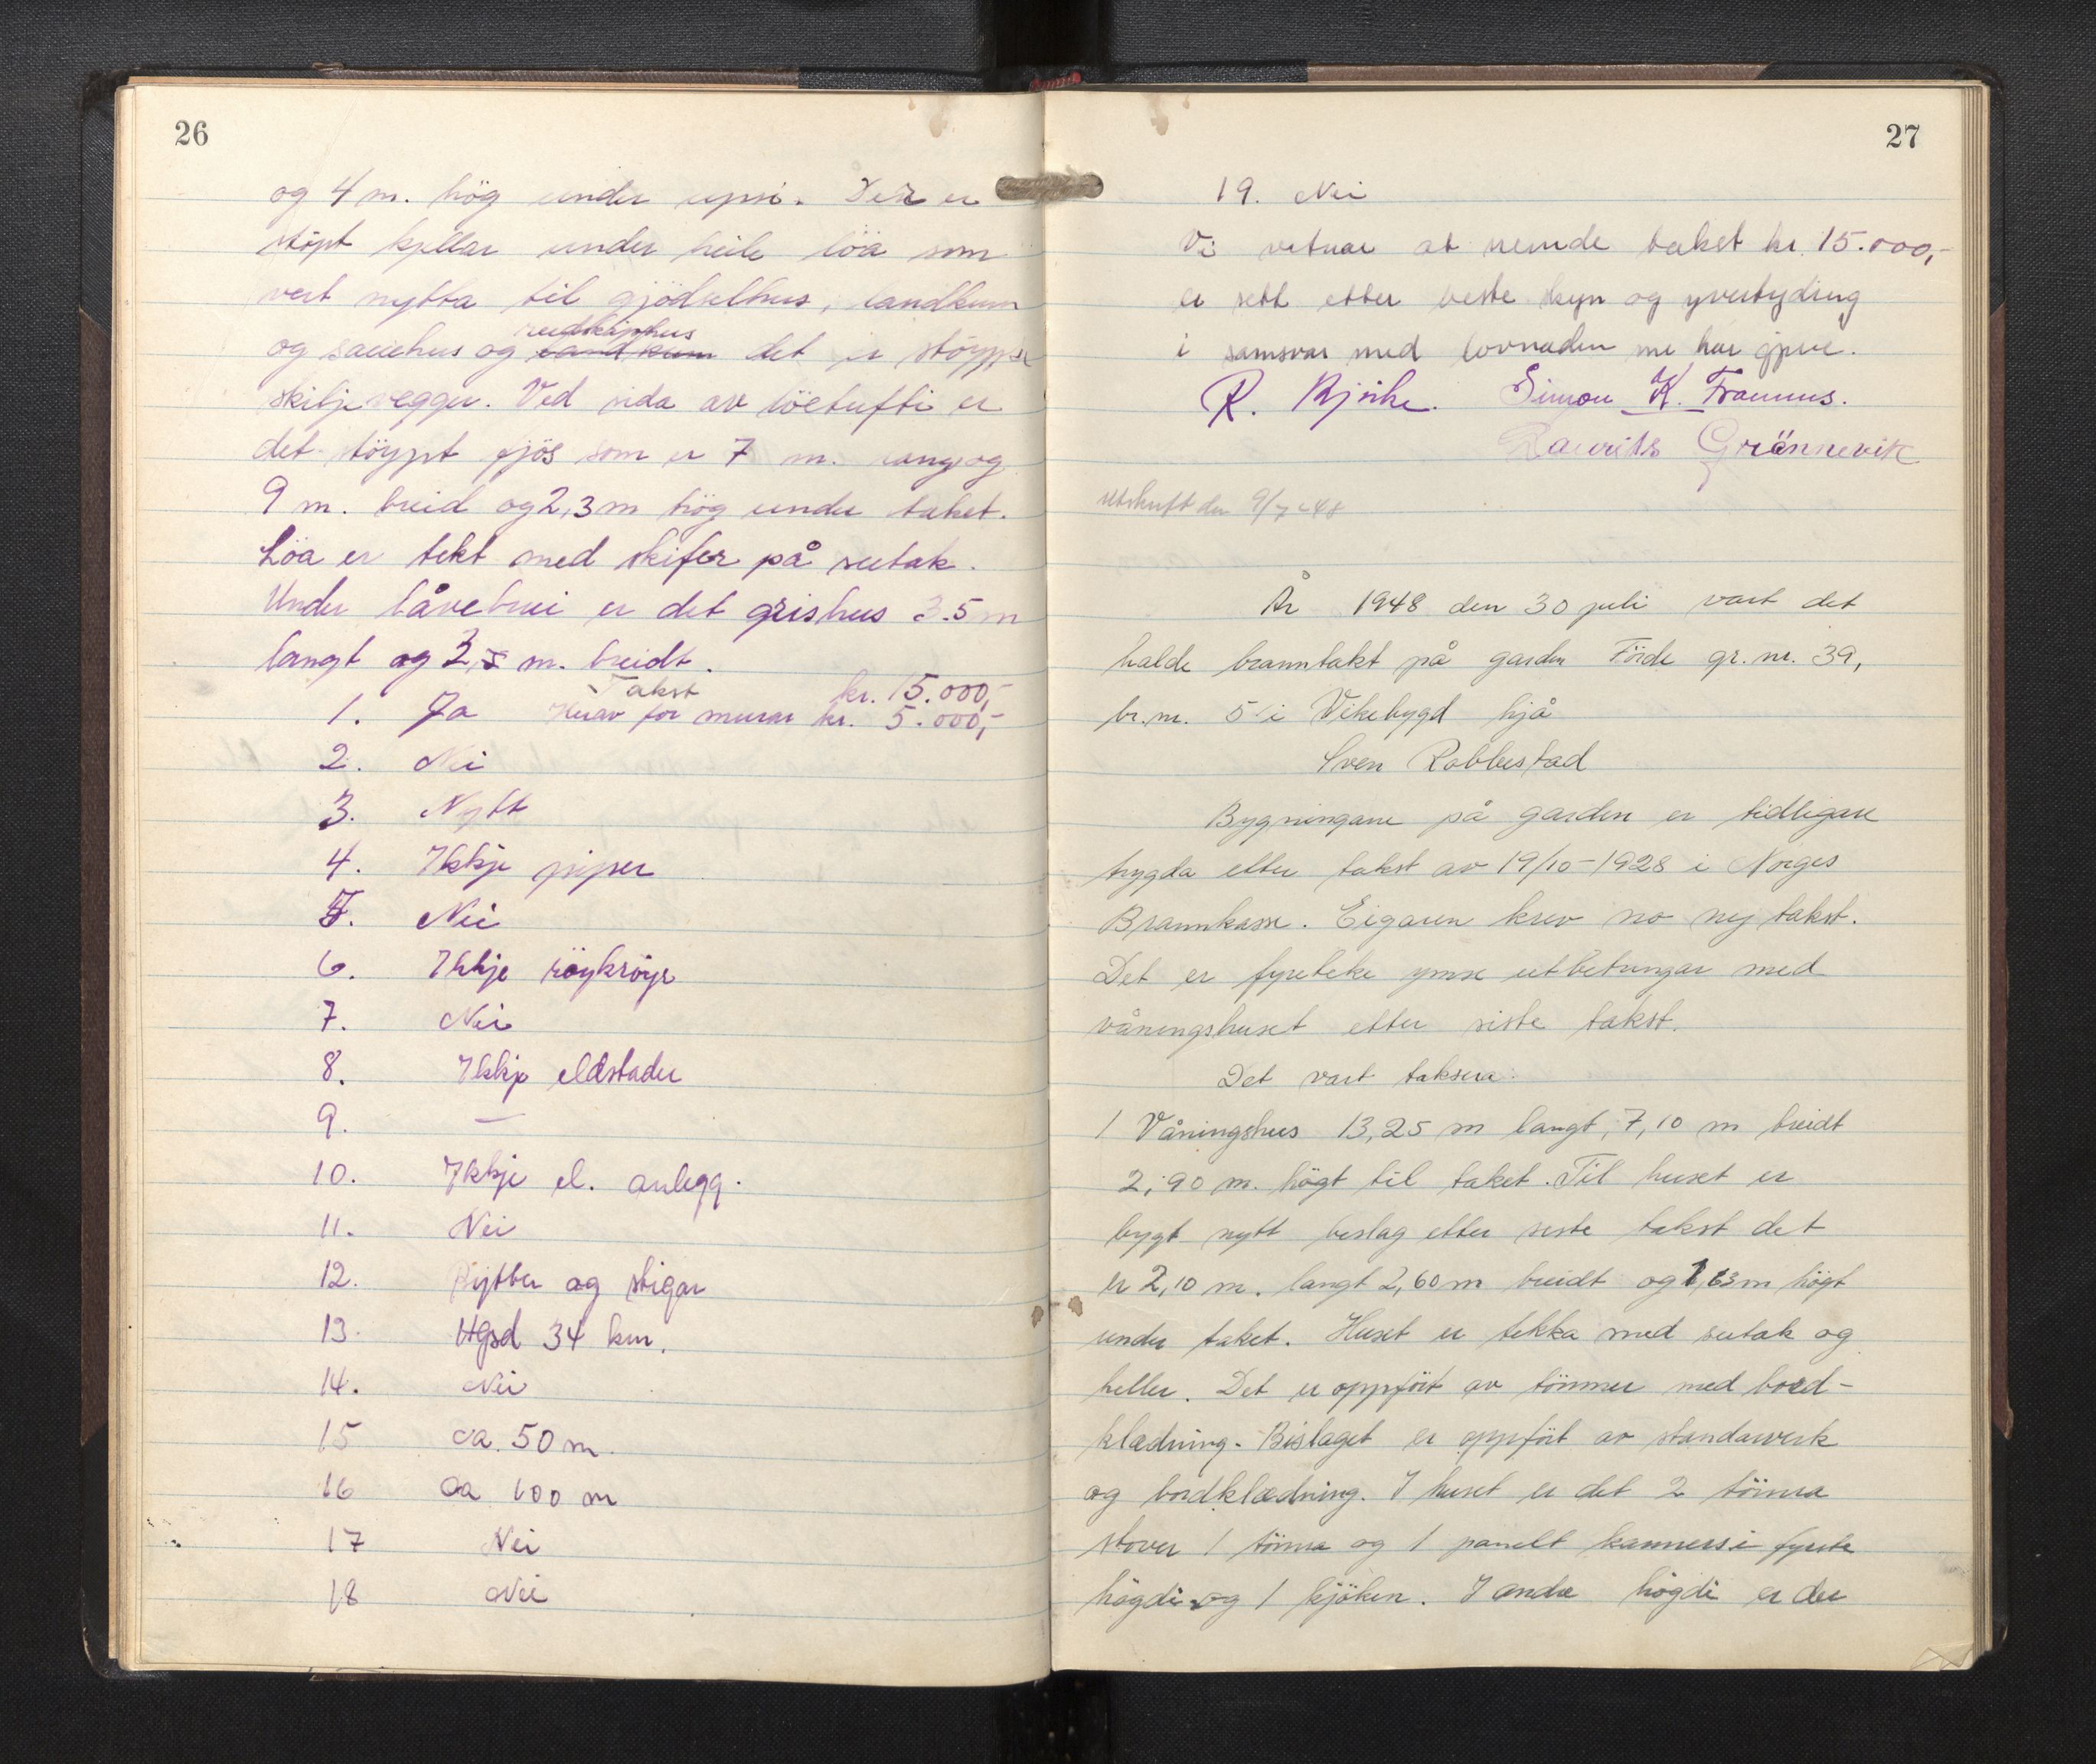 26
og 4 m. hög under upsi. Der er
støpt kjellar under heile löa som
vert nytta til gjödselhus, landkum
og sauehus og reidskaphus landkum det er støypte
skiljevegger. Ved sida av löetufti er
det støypt fjös som er 7 m. lang og
9 m. breid og 2,3 m hög under taket.
Löa er tekt med skifer på sutak.
Under låvebrui er det grishus 3.5 m
langt og m. breidt.
Takst kr. 15.000,-
1. Ja Herav for murar kr. 5.000,-
2. Nei
3. Nytt
4. Ikkje piper
5. Nei
6. Ikkje röykröyr
7. Nei
8. Ikkje eldstader
9. —
10. Ikkje el. anlegg.
11. Nei
12. Bytter og stigar
13. Hgsd 34 km.
14. Nei
15 ca. 50 m.
16 ca 100 m
17 Nei
18 Nei
27
19. Nei
Vi vitnar at nemde takst kr. 15.000,-
er sett etter beste skyn og yvertyding
i samsvar med lovnaden me har gjeve.
R. Bjørke. Simon K. Framnes.
Laurits Grönnevik
Utskrift den 9/7-48
År 1948 den 30 juli vart det
halde branntakst på garden Förde gr. nr. 39,
br. nr. 5 i Vikebygd hjå
Sven Robbestad
Bygningane på garden er tidligare
trygda etter takst av 19/10-1928 i Norges
Brannkasse. Eigaren krev no ny takst.
Det er fyreteke ymse utbetringar med
våningshuset etter siste takst.
Det vart taksera:
1 Våningshus 13,25 m langt, 7,10 m breidt
2,90 m. högt til taket. Til huset er
bygt nytt beslag etter siste takst det
er 2,10 m. langt 2,60 m breidt og 1,63 m högt
under taket. Huset er tekka med sutak og
heller. Det er oppfört av tömmer med bord-
klædning. Bislaget er oppfört av standarverk
og bordklædning. I huset er det 2 tömra
stover 1 tömra og 1 panelt kammers i fyrste
högdi og 1 kjöken. I andre högdi er der